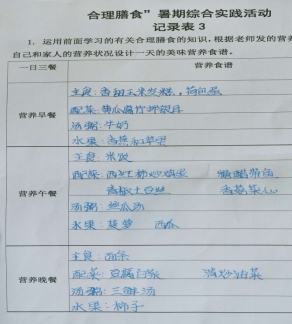 合理膳食”暑期综合实践活动
记录表 3
1. 运用前面学习的有关合理膳食的知识,根据老师发的营养
自己和家人的营养状况设计一天的美味营养食谱。
一日三餐 营养食谱
营养早餐
主食:香甜玉米发糕,荷包蛋
配菜:黄瓜
汤粥:牛奶
水果:香蕉和苹果
营养午餐
主食:米饭
配菜:西红柿炒鸡蛋
青椒土豆丝
汤粥:丝瓜汤
水果:菠萝 西瓜
营养晚餐
主食:面条
配菜:豆腐 清炒油菜
汤粥:三鲜汤
水果:柿子